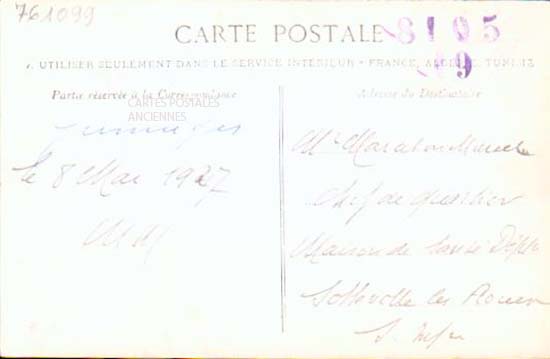 761099
CARTE POSTALE
8105
9
A UTILISER SEULEMENT DANS LE SERVICE INTÉRIEUR - FRANCE, ALGÉRIE, TUNISIE
Partie réservée à la Correspondance
CARTES POSTALES
ANCIENNES
Jumièges
le 8 Mai 1927
Adresse du Destinataire
Mr Marabou
Chef de quartier
Maison de Santé Dép
Sotteville les Rouen
S. Infre